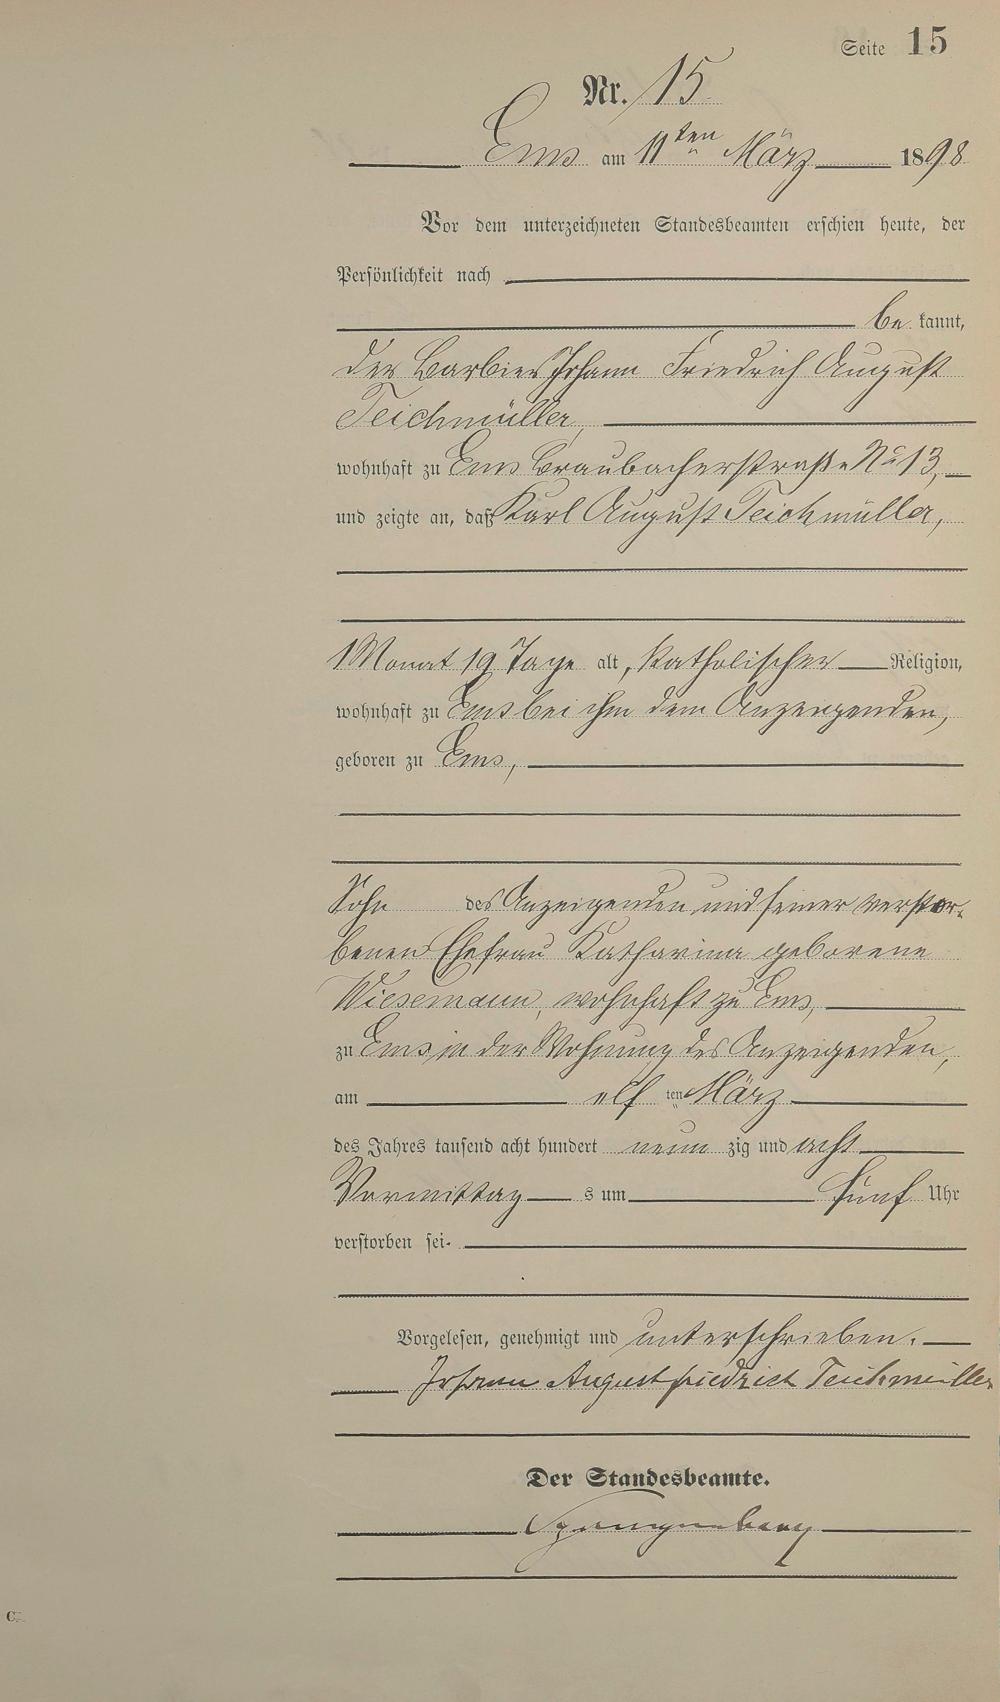 Seite 15
Nr. 15.
Ems am 11ten März 1898
Vor dem unterzeichneten Standesbeamten erschien heute, der
Persönlichkeit nach
be kannt,
der Barbier Johann Friedrich August
Teichmüller,
wohnhaft zu Ems Braubacherstraße No 13,
und zeigte an, daß Karl August Teichmüller,
1 Monat 19 Tage alt, katholischer Religion,
wohnhaft zu Ems bei ihm dem Anzeigenden,
geboren zu Ems,
Sohn des Anzeigenden und seiner verstor-
benen Ehefrau Katharina geborene
Wiesemann, wohnhaft zu Ems,
zu Ems in der Wohnung des Anzeigenden,
am elf ten März
des Jahres tausend acht hundert neun zig und acht
Vormittag s um fünf Uhr
verstorben sei.
Vorgelesen, genehmigt und unterschrieben.
Johann August friedrich Teichmüller
Der Standesbeamte.
Spangenberg
C.